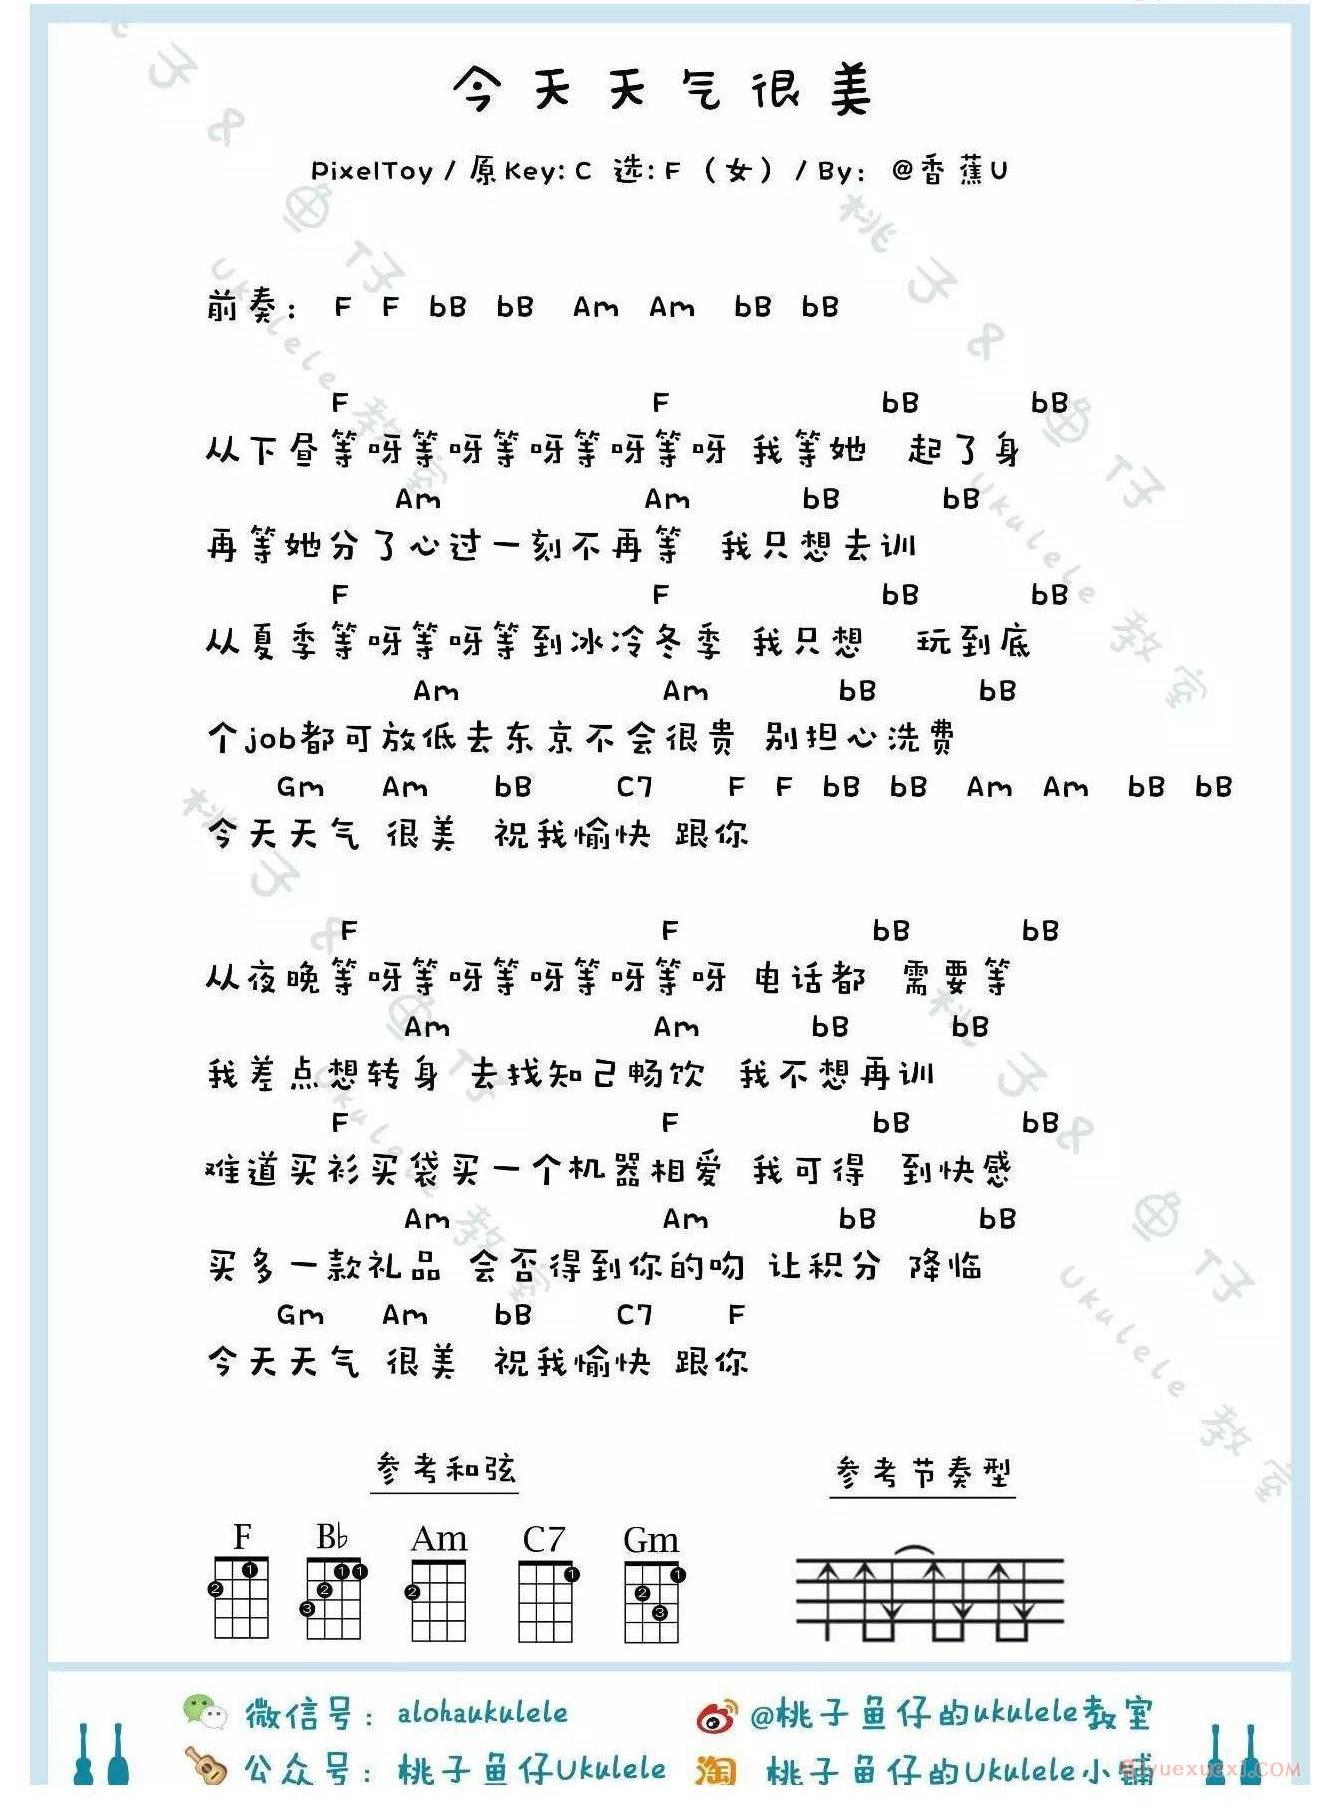 今天天气很美
PixelToy / 原Key: C 选: F （女） / By: @香蕉U
前奏: F F bB bB Am Am bB bB
F F bB bB
从下昼等呀等呀等呀等呀等呀 我等她 起了身
Am Am bB bB
再等她分了心过一刻不再等 我只想去训
F F bB bB
从夏季等呀等呀等到冰冷冬季 我只想 玩到底
Am Am bB bB
个job都可放低去东京不会很贵 别担心洗费
Gm Am bB C7 F F bB bB Am Am bB bB
今天天气 很美 祝我愉快 跟你
F F bB bB
从夜晚等呀等呀等呀等呀等呀 电话都 需要等
Am Am bB bB
我差点想转身 去找知己畅饮 我不想再训
F F bB bB
难道买衫买袋买一个机器相爱 我可得 到快感
Am Am bB bB
买多一款礼品 会否得到你的吻 让积分 降临
Gm Am bB C7 F
今天天气 很美 祝我愉快 跟你
参考和弦 参考节奏型
F B♭ Am C7 Gm
微信号: alohaukulele @桃子鱼仔的ukulele教室
公众号: 桃子鱼仔Ukulele 淘 桃子鱼仔的Ukulele小铺
桃子&鱼T子
Ukulele教室
桃子&鱼T子
Ukulele教室
桃子&鱼T子
Ukulele教室
桃子&鱼T子
Ukulele教室